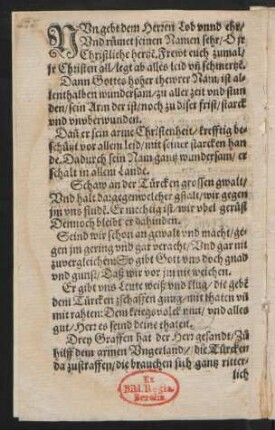 NVn gebt dem Herren Lob vnnd ehr/
Vnd rümet seinen Namen sehr/ O jr
Christliche hertz/ Frewt euch zumal/
jr Christen all/ legt ab alles leid vñ schmertz.
Dann Gottes hoher thewrer Nam/ ist al-
lenthalben wundersam/ zu aller zeit vnd stun
den/ sein Arm der ist/ noch zu diser frist/ starck
vnd vnvberwunden.
Dañ er sein arme Christenheit/ trefftig be-
schützt vor allem leid/ mit seiner starcken han
de. Dadurch sein Nam gantz wundersam/ er
schalt in allem Lande.
Schaw an der Türcken grossen gwalt/
Vnd halt dargegen welcher gstalt/ wir gegen
jm vns finde. Er mechtig ist/ wir vbel gerüst
Dennoch bleibt er dahinden.
Seind wir schon an gewalt vnd macht/ ge-
gen jm gering vnd gar veracht/ Vnd gar nit
zuvergleichen: So gibt Gott vns doch gnad
vnd gunst/ Daß wir vor jm nit weichen.
Er gibt vns Leute weiß vnd klug/ die gebē
dem Türcken zschaffen gnug/ mit thaten vñ
mit rahten: Dem kriegsvolck mut/ vnd alles
gut/ Herr es seind deine thaten.
Drey Graffen hat der Herr gesandt/ Zů
hilff dem armen Vngerland/ die Türcken
da zustraffen/ die brauchen sich gang ritter-
lich
Ex
Bibl. Regia
Berolin.